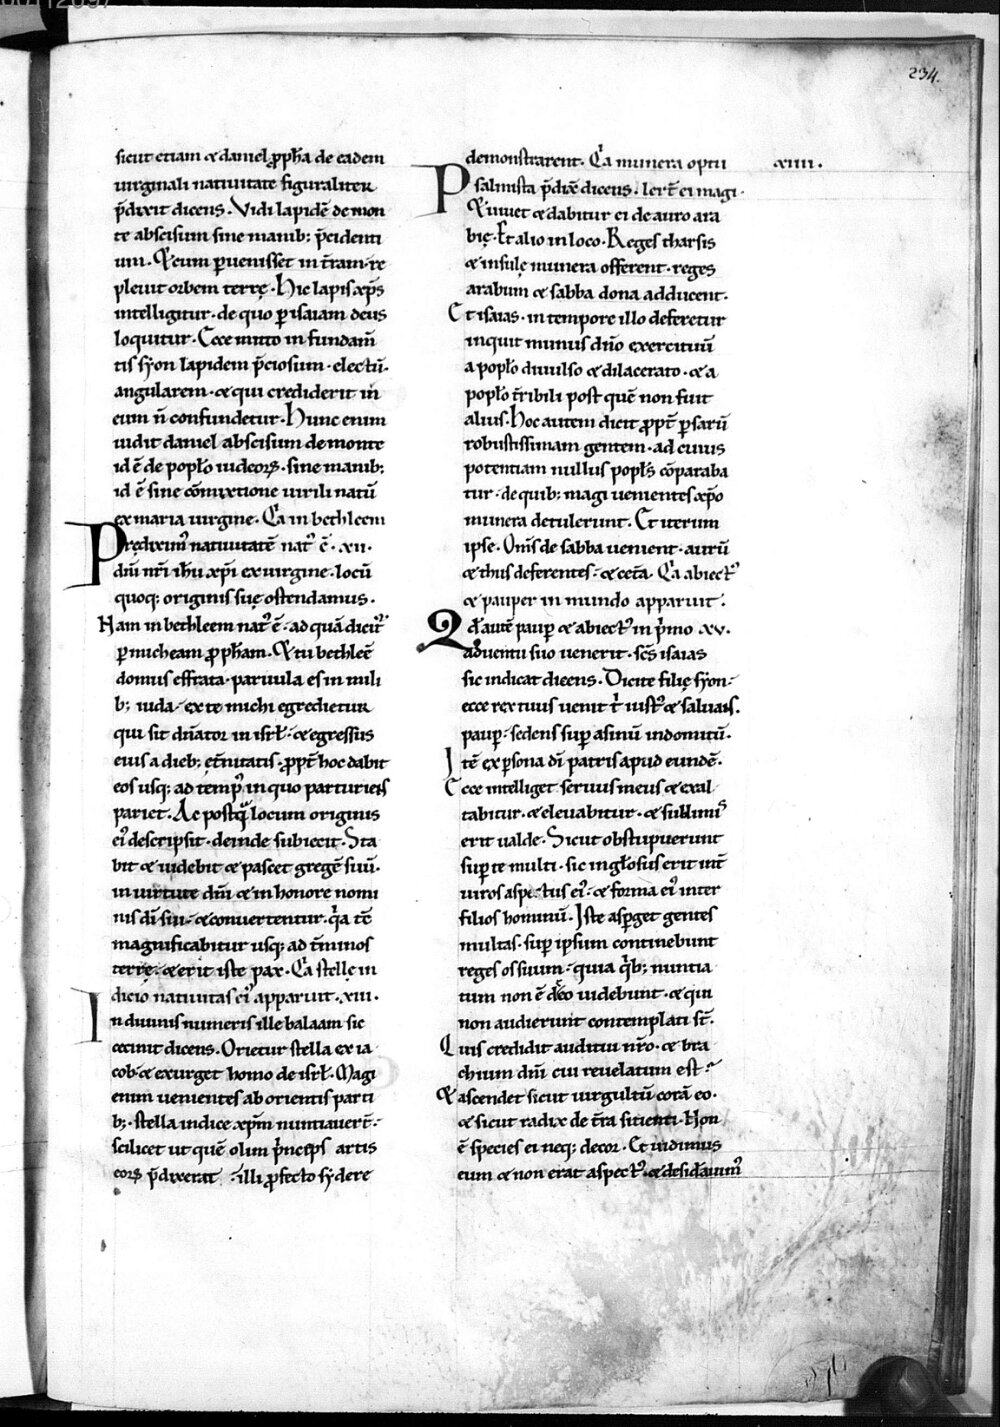 234.
sicut etiam & daniel ꝓph̄a de eadem
uirginali natiuitate figuraliter
p̄dixit dicens. Vidi lapidē de mon
te abscisum sine manib; p̄cidenti
um. Et cum ꝑuenisset in t̄ram re
pleuit orbem terrę. Hic lapis xp̄s
intelligitur. de quo ꝑ isaiam deus
loquitur. Ecce mitto in fundam̄
tis syon lapidem p̄ciosum. electū.
angularem. & qui crediderit in
eum n̄ confundetur. Hunc enim
uidit daniel abscisum de monte
id ē de popl̓o iudeoꝝ. sine manib;
id ē sine cōmixtione uirili natū
ex maria uirgine. Q̄a in bethleem
Prediximꝰ natiuitatē natꝰ ē. xii.
dn̄i nr̄i ih̄u xp̄i ex uirgine. locū
quoq; originis suę ostendamus.
Nam in bethleem natꝰ ē. ad quā dicit̄
ꝑ micheam ꝓph̄am. Et tu bethleē
domus effrata. paruula es in mili
b; iuda. ex te michi egredietur
qui sit dn̄ator in isrl̄. & egressus
eius a dieb; et̄nitatis. ꝓpt̄ hoc dabit
eos usq; ad tempꝰ in quo parturiens
pariet. Ac postq̄ locum originis
eiꝰ descripsit. deinde subiecit. Sta
bit & uidebit & pascet gregē suū.
in uirtute dn̄i & in honore nomi
nis dī sui. & conuertentur. q̄a tc̄
magnificabitur usq; ad t̄minos
terrę. & erit iste pax. Q̄a stellę in
dicio natiuitas eiꝰ apparuit. xiii.
In diuinis numeris ille balaam sic
cecinit dicens. Orietur stella ex ia
cob. & exurget homo de isrl̄. Magi
enim uenientes ab orientis parti
b; stella indice xp̄m nuntiauert̄.
scilicet ut quē olim p̄nceps artis
eoꝝ p̄dixerat. illi ꝓfecto sydere
demonstrarent. Q̄a munera optu xiiii.
Psalmista p̄dix̄ dicens. lert̄ ei magi.
Et uiuet & dabitur ei de auro ara
bię. Et alio in loco. Reges tharsis
& insulę munera offerent. reges
arabum & sabba dona adducent.
Et isaias. in tempore illo deferetur
inquit munus dn̄o exercituū
a popl̓o diuulso & dilacerato. & a
popl̓o t̄ribili post quē non fuit
alius. Hoc autem dicit ꝓpt̄ ꝑsarū
robustissimam gentem. ad cuius
potentiam nullus popl̓s cōparaba
tur. de quib; magi uenientes xp̄o
munera detulerunt. Et iterum
ipse. Om̄s de sabba uenient. aurū
& thus deferentes. & cet̄a. Q̄a abiectꝰ
& pauper in mundo apparuit.
Qd̄ autē paup̄ & abiectꝰ in p̄mo xv.
aduentu suo uenerit. sc̄s isaias
sic indicat dicens. Dicite filię syon.
ecce rex tuus uenit t̄ iustꝰ & saluans.
paup̄. sedens sup̄ asinū indomitū.
Itē ex ꝑsona dī patris apud eundē.
Ecce intelliget seruus meus & exal
tabitur. & eleuabitur. & sublimis
erit ualde. Sicut obstupuerunt
sup̄ te multi. sic ingl̓osus erit int̄
uiros aspectus eiꝰ. & forma eiꝰ inter
filios hominū. Iste asꝑget gentes
multas. sup̄ ipsum continebunt
reges os suum. quia q̄b; nuntia
tum non ē d̄ eo uidebunt. & qui
non audierunt contemplati st̄.
Quis credidit auditui nr̄o. & bra
chium dn̄i cui reuelatum est.
Et ascendet sicut uirgultū corā eo.
& sicut radix de t̄ra sitienti. Non
ē species ei neq; decor. Et uidimus
eum & non erat aspectꝰ. & desid̄auimꝰ